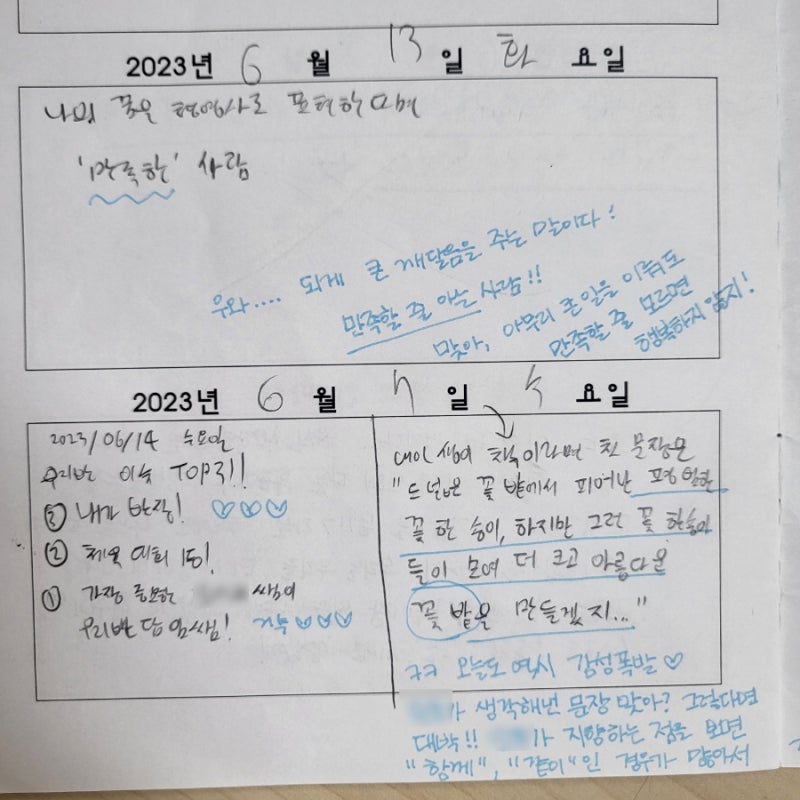 2023년 6 월 13 일 화 요일
나의 꿈은 형용사로 표현한다면
'만족한' 사람
우와.... 되게 큰 깨달음을 주는 말이다!
만족할 줄 아는 사람!!
맞아, 아무리 큰 일을 이뤄도
만족할 줄 모르면
행복하지 않지!
2023년 6 월 일 수 요일
2023/06/14 수요일
우리반 이슈 TOP3!!
③ 내가 반장!
② 체육대회 1등!
① 가장 중요한 쌤이
우리반 담임쌤!
내 인생이 책이라면 첫 문장은
"드넓은 꽃 밭에서 피어난 평범한
꽃 한 송이, 하지만 그런 꽃 한송이
들이 모여 더 크고 아름다운
꽃 밭을 만들겠지..."
ㅋㅋ 오늘도 역시 감성폭발♡
가 생각해낸 문장 맞아? 그렇다면
대박!! 가 지향하는 점을 보면
"함께", "같이"인 경우가 많아서